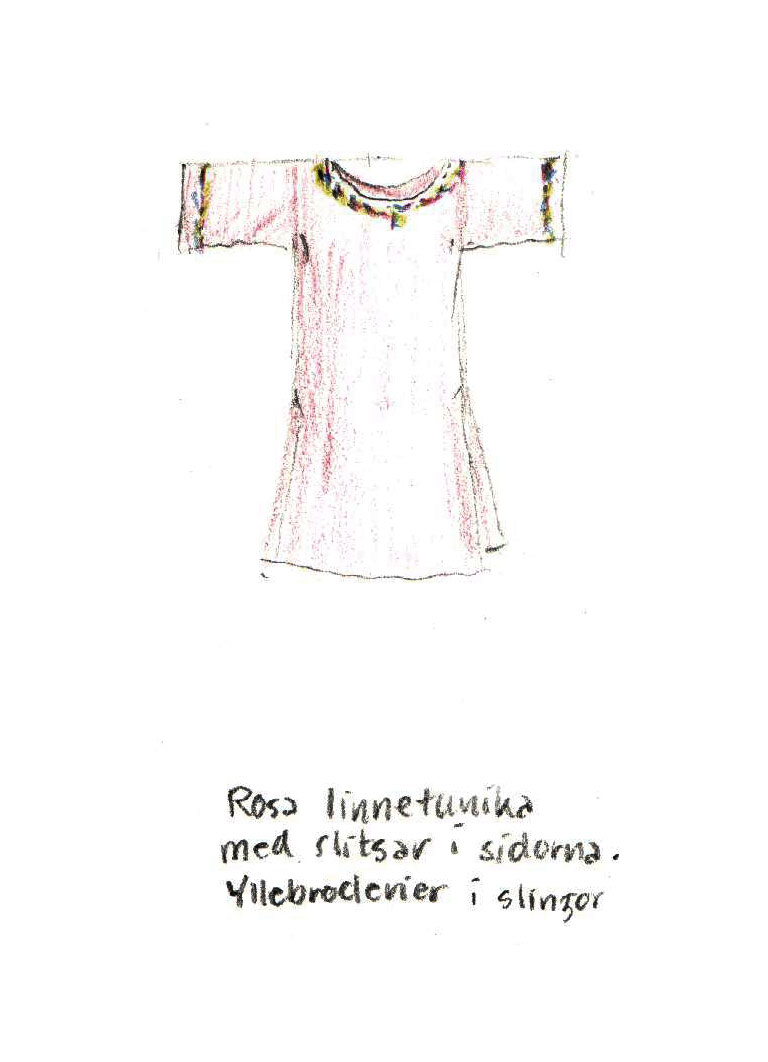 Rosa linnetunika
med slitsar i sidorna.
Yllebroderier i slingor